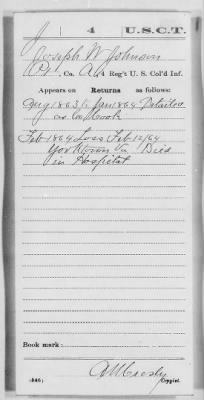 J | 4 | U.S.C.T.
Joseph W Johnson
Pt, Co. A, 4 Reg't U. S. Col'd Inf.
Appears on Returns as follows:
Aug 1863 to Jan 1864 Detailed
as Co Cook
Feb 1864 Loss Feb 12/64
Yorktown Va Died
in Hospital
Book mark:
(546)
Copyist.